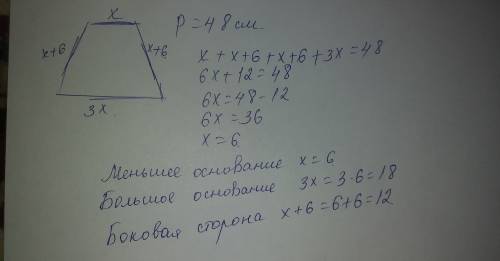 x
x+6
x+6
3x
P = 48 см
x + x+6 + x+6 + 3x = 48
6x + 12 = 48
6x = 48 - 12
6x = 36
x = 6
Меньшее основание x = 6
Большое основание 3x = 3·6 = 18
Боковая сторона x+6 = 6+6 = 12